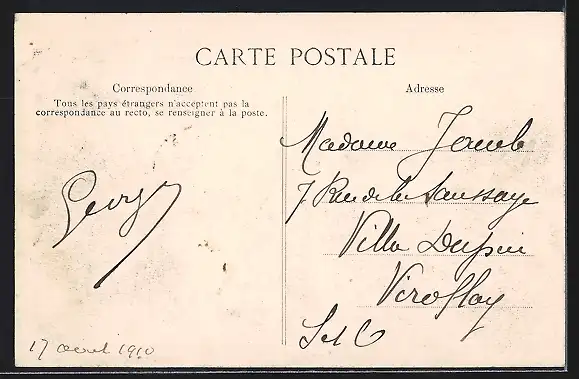 CARTE POSTALE
Correspondance
Tous les pays étrangers n'acceptent pas la
correspondance au recto, se renseigner à la poste.
Georges
17 avril 1910
Adresse
Madame Jacob
7 Rue de la Saussaye
Villa Dupin
Viroflay
S et O